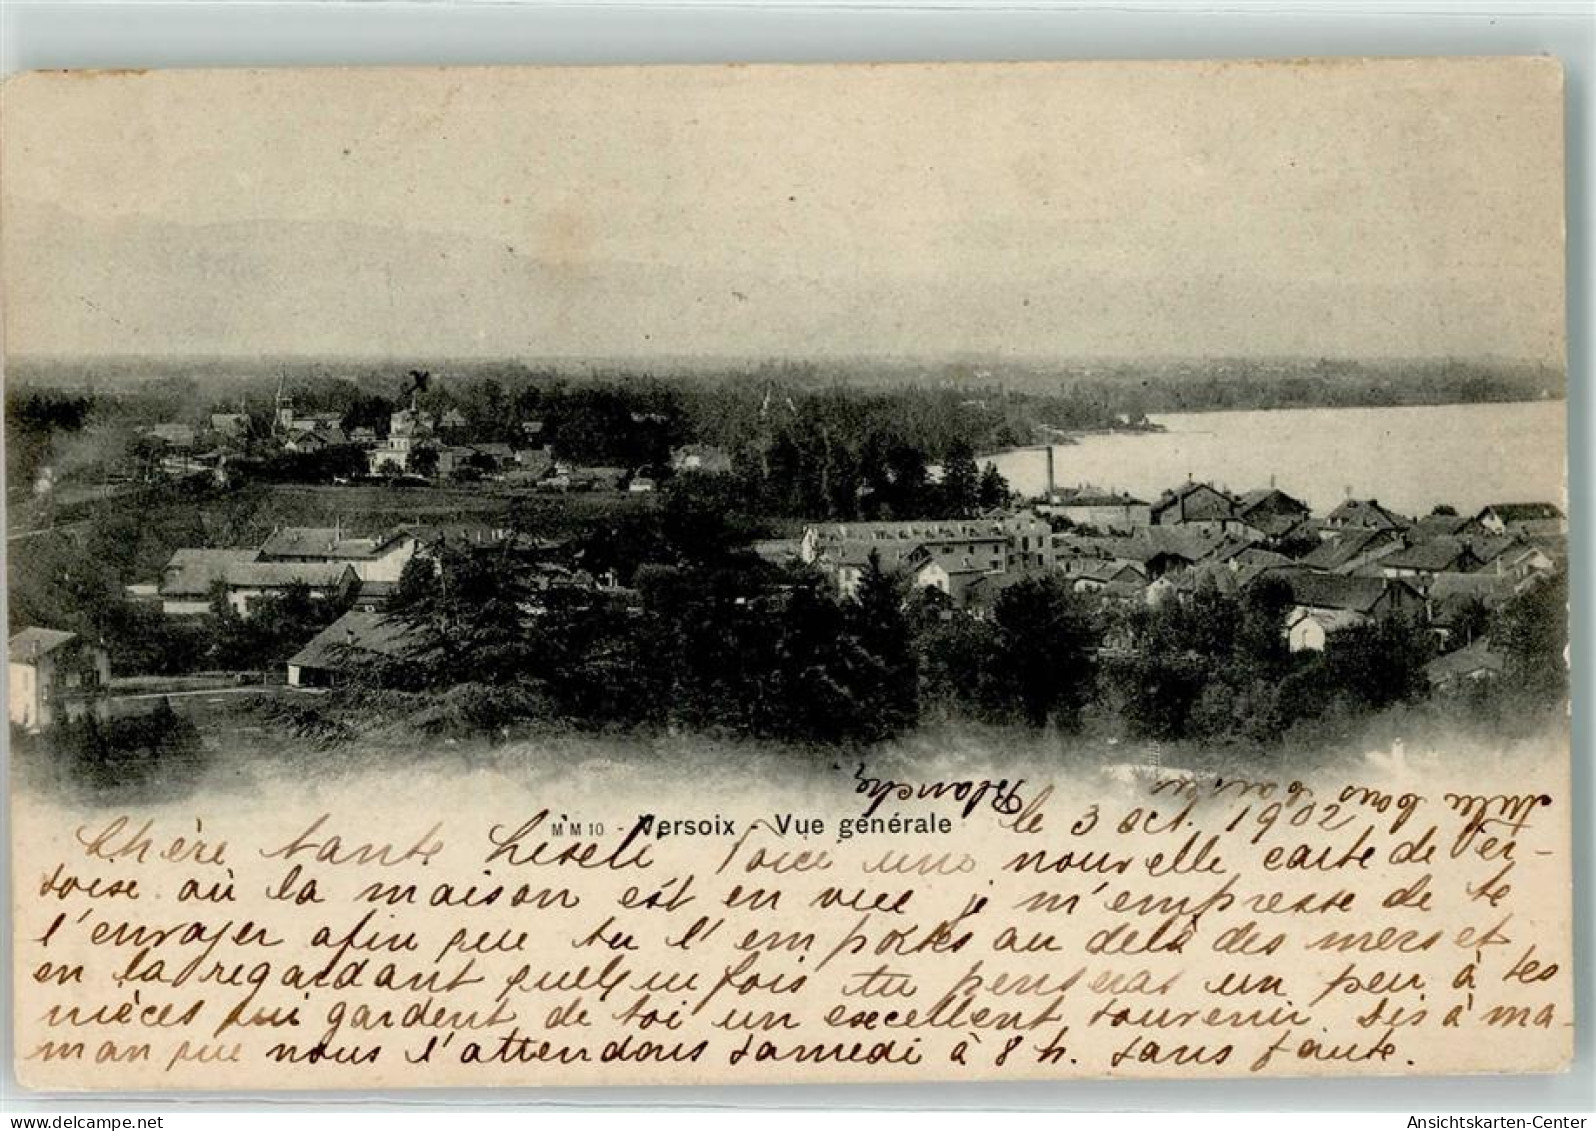 x
MM10 - Versoix - Vue générale
le 3 oct. 1902
Chère tante Liseli Voici une nouvelle carte de Ver-
soise où la maison est en vue je m'empresse de te
l'envoyer afin que tu l'emportes au delà des mers et
en la regardant quelquefois tu penseras un peu à tes
nièces qui gardent de toi un excellent souvenir. Dis à ma-
man que nous l'attendons samedi à 8 h. sans faute.
bons baisers
Blanche
delcampe.net
Ansichtskarten-Center